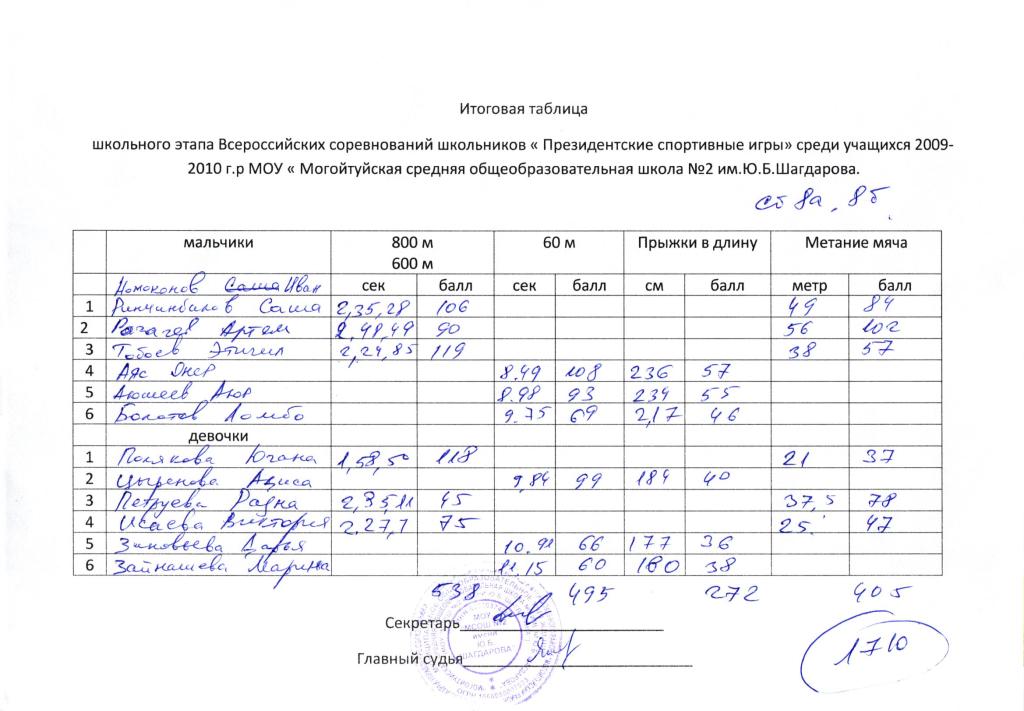 Итоговая таблица
школьного этапа Всероссийских соревнований школьников « Президентские спортивные игры» среди учащихся 2009-
2010 г.р МОУ « Могойтуйская средняя общеобразовательная школа №2 им.Ю.Б.Шагдарова.
8а, 8б
мальчики 800 м 60 м Прыжки в длину Метание мяча
600 м
Номоконов Саша Иван сек балл сек балл см балл метр балл
1 Саша 2,35,28 106 49 84
2 Артем 2,48,49 90 56 102
3 Тобоев Этигил 2,24,85 119 38 57
4 8.49 108 236 57
5 Аюшеев Аюр 8.98 93 234 55
6 Болотов Ломбо 9.75 69 2,17 46
девочки
1 Полякова Югана 1,58,50 118 21 37
2 Цыренова 9,84 99 184 40
3 Петруева Радна 2,35,11 45 37,5 78
4 Исаева Виктория 2.27,7 75 25. 47
5 Зиновьева Дарья 10.91 66 177 36
6 Марина 11.15 60 180 38
538 495 272 405
Секретарь
Главный судья
1710
МОУ
МСОШ №2
имени
Ю.Б.
ШАГДАРОВА